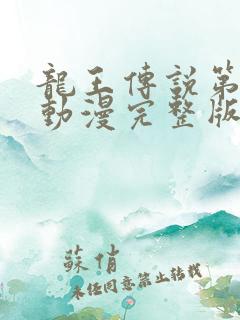 龍王傳說第
動漫完整版
蘇俏
未經同意禁止轉載